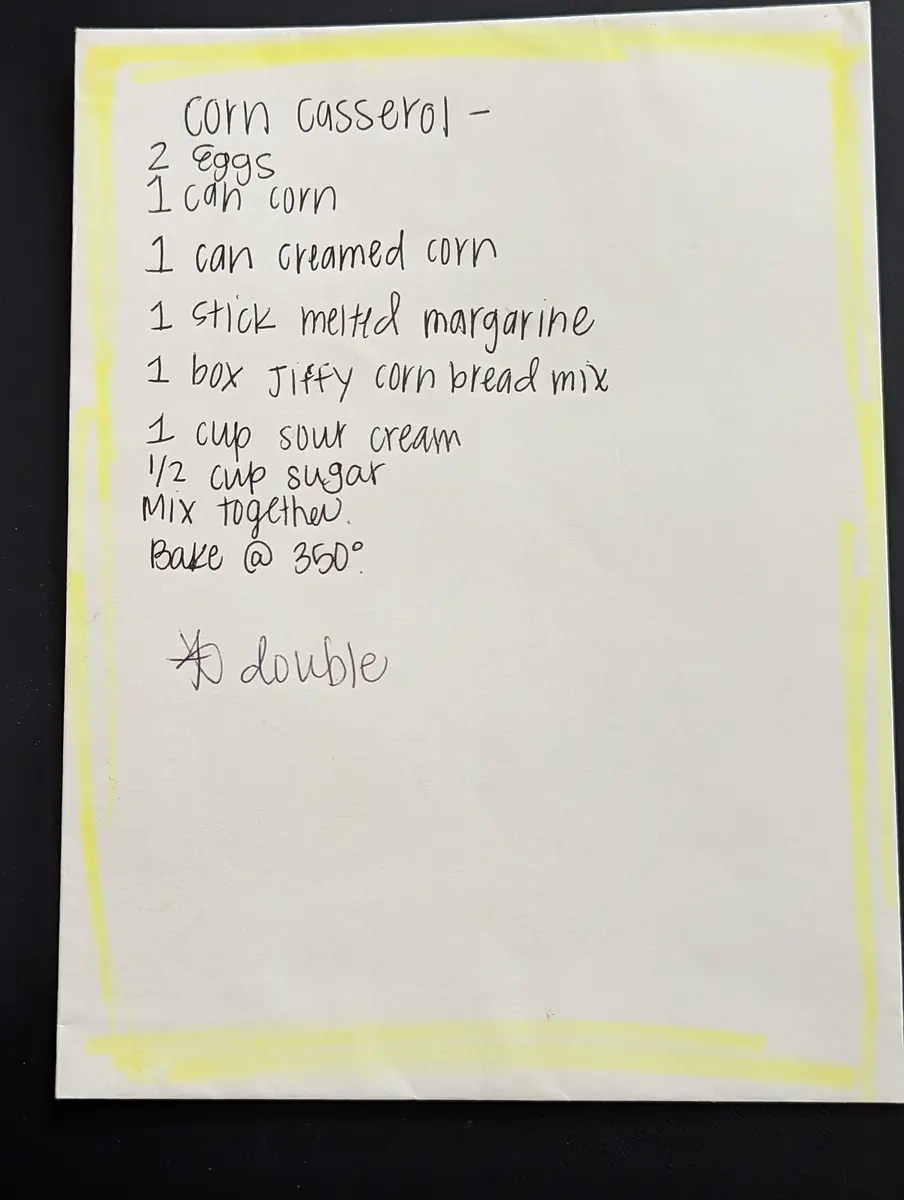 Corn Casserol -
2 Eggs
1 can corn
1 can creamed corn
1 stick melted margarine
1 box Jiffy corn bread mix
1 cup sour cream
1/2 cup sugar
Mix together.
Bake @ 350°.
* double